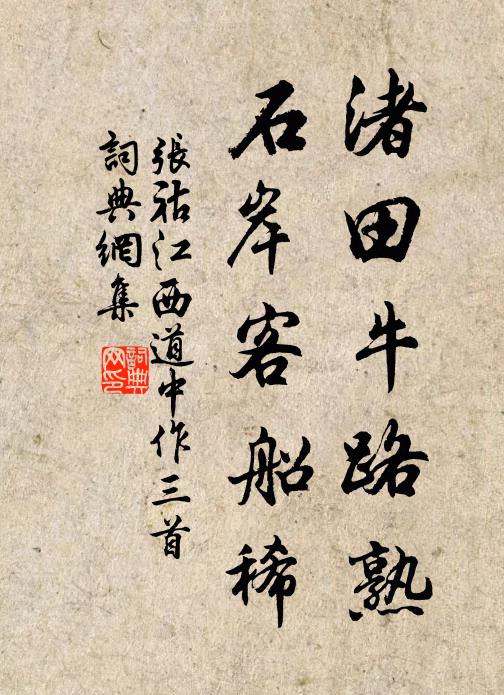 渚田牛路熟
石岸客船稀
張祜江西道中作三首
詞典網集
詞典網印